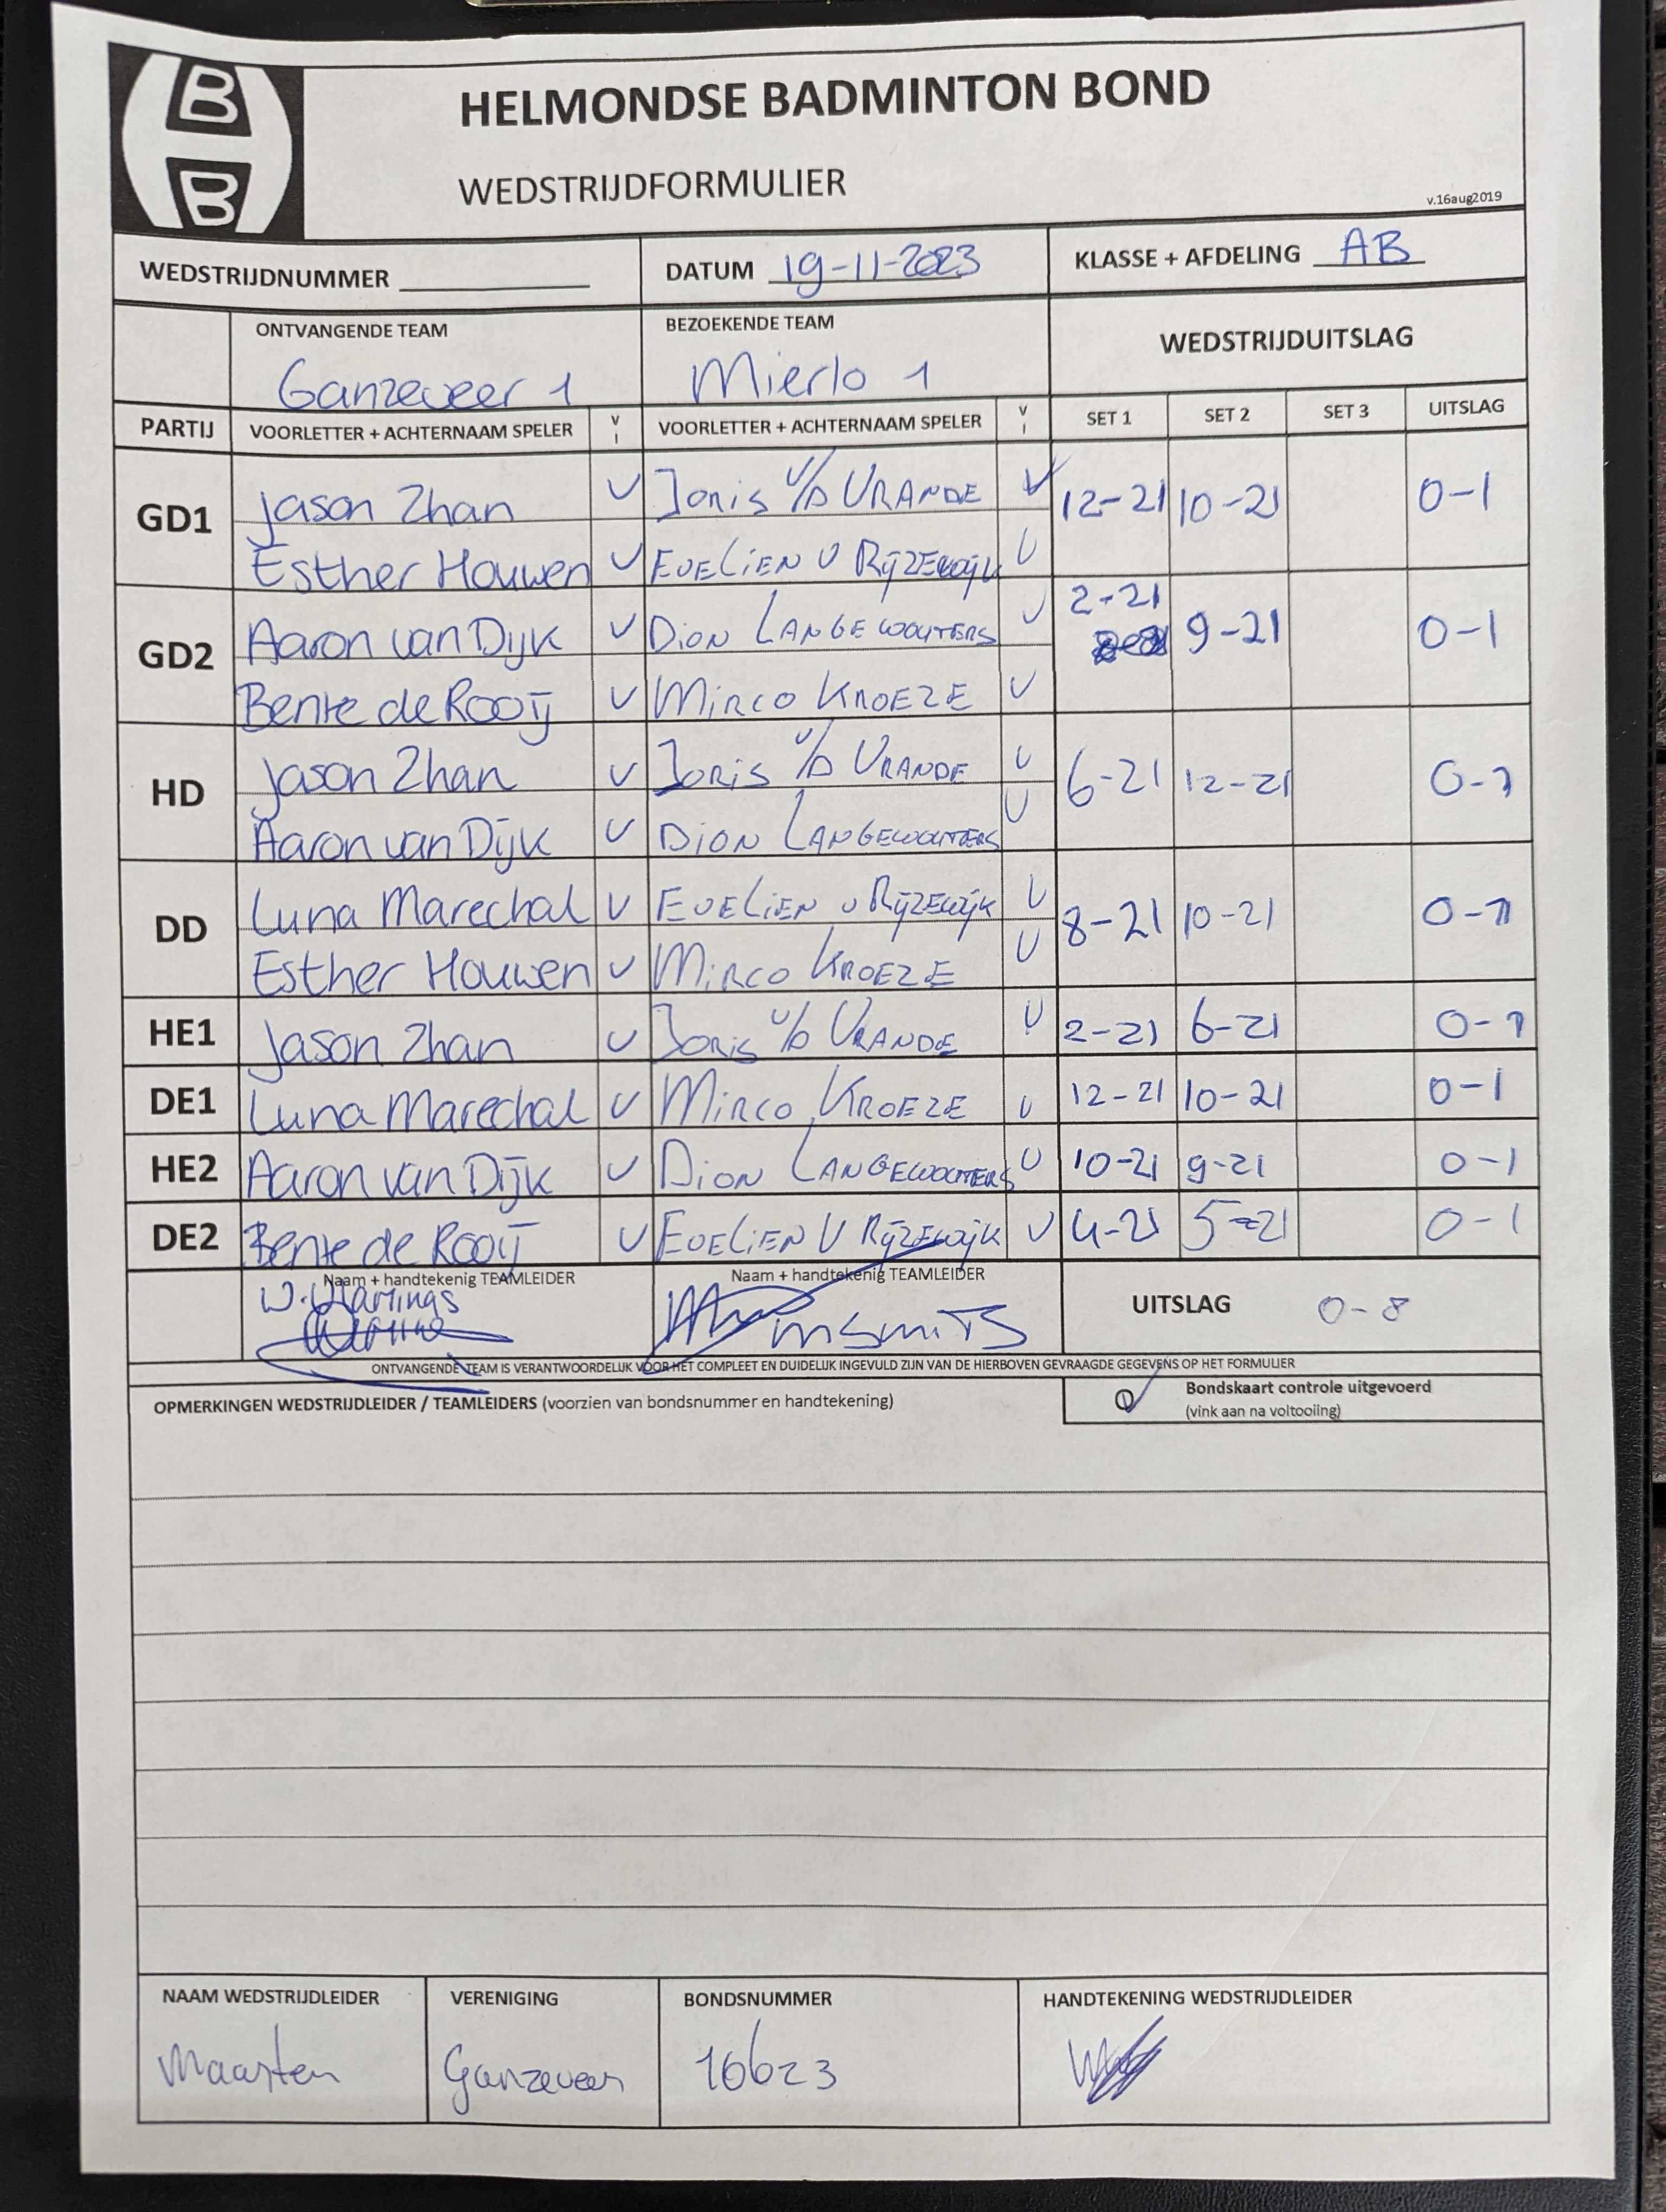 B
B
HELMONDSE BADMINTON BOND
WEDSTRIJDFORMULIER
v.16aug2019
WEDSTRIJDNUMMER DATUM 19-11-2023 KLASSE + AFDELING AB
ONTVANGENDE TEAM BEZOEKENDE TEAM WEDSTRIJDUITSLAG
Ganzeveer 1 Mierlo 1
PARTIJ VOORLETTER + ACHTERNAAM SPELER V I VOORLETTER + ACHTERNAAM SPELER V I SET 1 SET 2 SET 3 UITSLAG
GD1 Jason Zhan V Joris v/d VRANDE V 12-21 10-21 0-1
Esther Houwen V EVELIEN V RIJZEWIJK V
GD2 Aaron van Dijk V DION LANGEWOUTERS V 2-21 9-21 0-1
Bente de Rooij V MIRCO KROEZE V
HD Jason Zhan V JORIS v/D VRANDE V 6-21 12-21 0-1
Aaron van Dijk V DION LANGEWOUTERS V
DD Luna Marechal V EVELIEN V RIJZEWIJK V 8-21 10-21 0-1
Esther Houwen V MIRCO KROEZE V
HE1 Jason Zhan V JORIS v/D VRANDE V 2-21 6-21 0-1
DE1 Luna Marechal V MIRCO KROEZE V 12-21 10-21 0-1
HE2 Aaron van Dijk V DION LANGEWOUTERS V 10-21 9-21 0-1
DE2 Bente de Rooij V EVELIEN V RIJZEWIJK V 4-21 5-21 0-1
Naam + handtekenig TEAMLEIDER Naam + handtekenig TEAMLEIDER UITSLAG 0-8
W. Harings M SMITS
ONTVANGENDE TEAM IS VERANTWOORDELIJK VOOR HET COMPLEET EN DUIDELIJK INGEVULD ZIJN VAN DE HIERBOVEN GEVRAAGDE GEGEVENS OP HET FORMULIER
OPMERKINGEN WEDSTRIJDLEIDER / TEAMLEIDERS (voorzien van bondsnummer en handtekening)
Bondskaart controle uitgevoerd
(vink aan na voltooiing)
NAAM WEDSTRIJDLEIDER VERENIGING BONDSNUMMER HANDTEKENING WEDSTRIJDLEIDER
Maarten Ganzeveer 16623